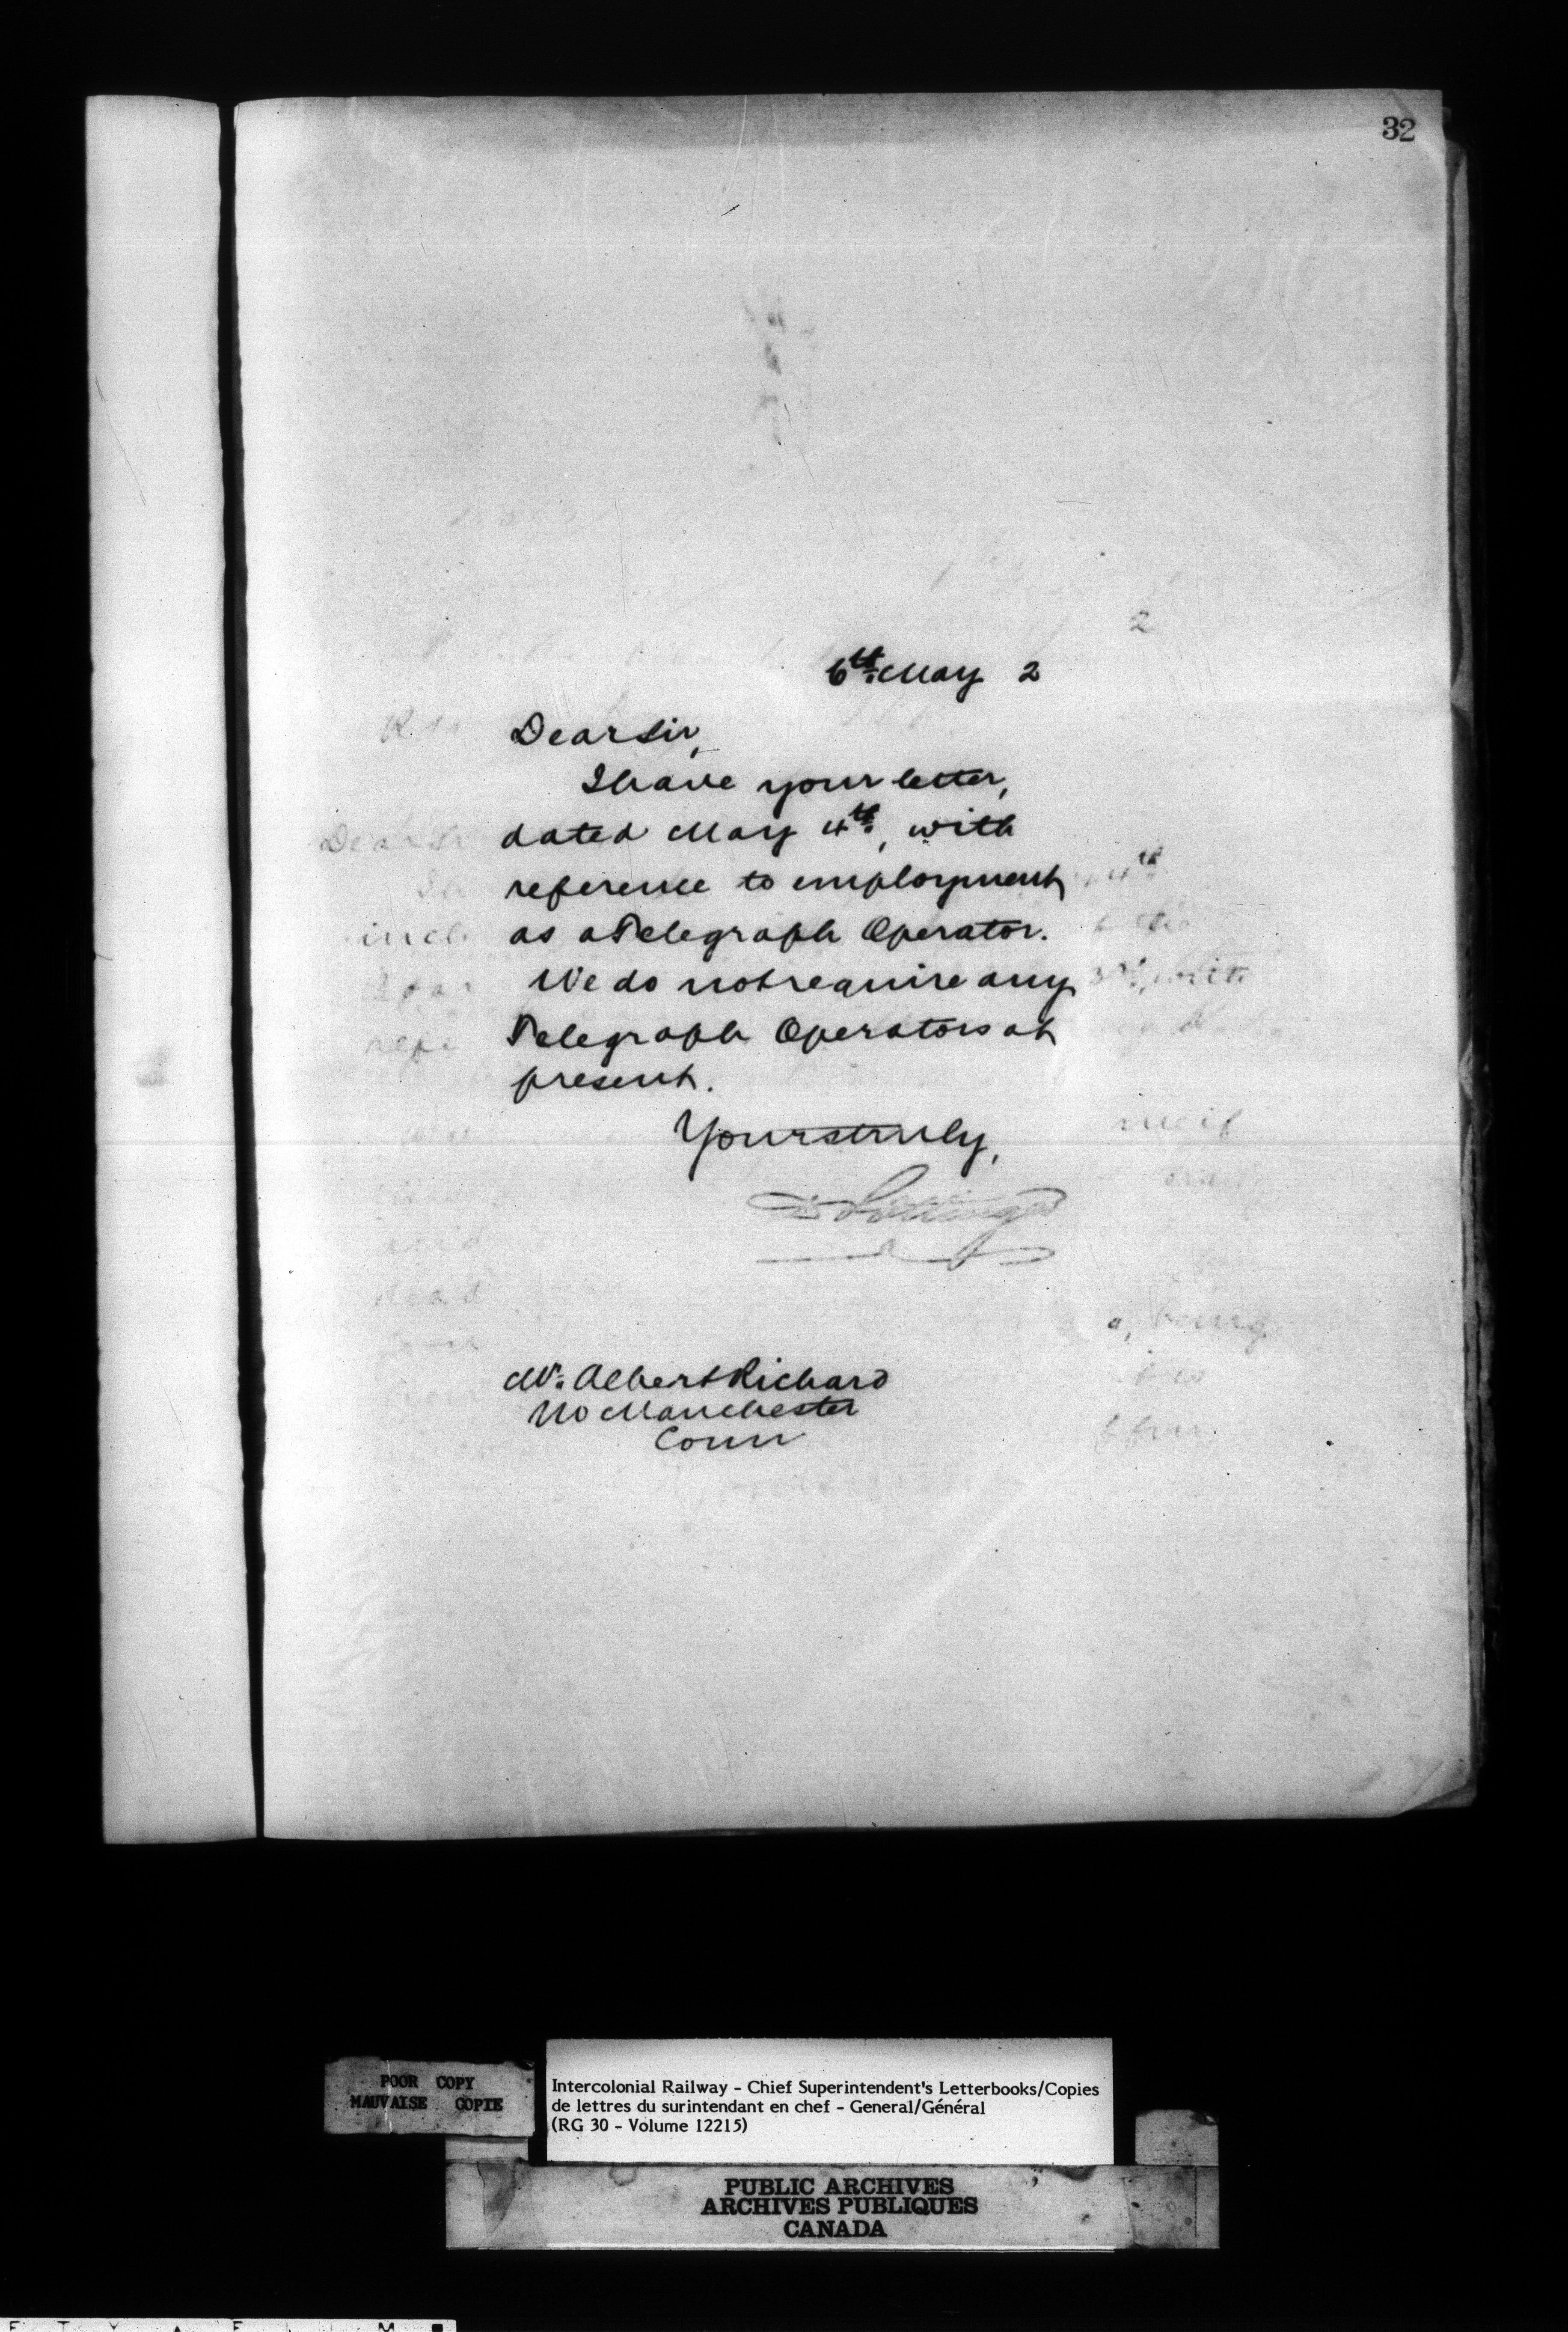 32
6th May 2
Dear Sir,
I have your letter,
dated May 4th, with
reference to employment
as a Telegraph Operator.
We do not require any
Telegraph Operators at
present.
Yours truly,
D Pottinger
Mr. Albert Richard
No Manchester
Conn
POOR COPY
MAUVAISE COPIE
Intercolonial Railway - Chief Superintendent's Letterbooks/Copies
de lettres du surintendant en chef - General/Général
(RG 30 - Volume 12215)
PUBLIC ARCHIVES
ARCHIVES PUBLIQUES
CANADA